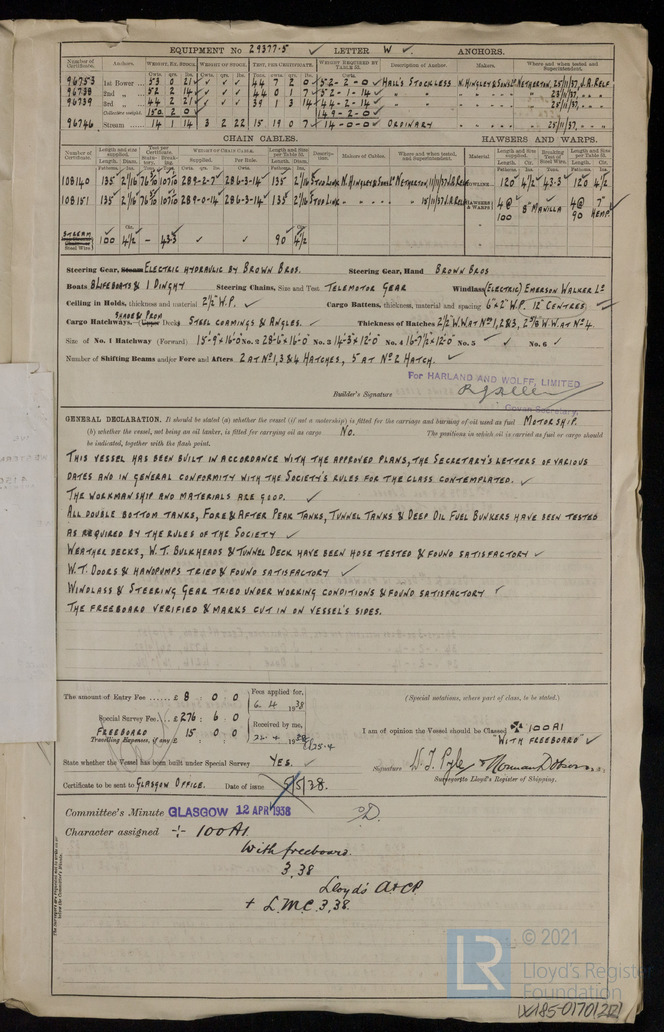 EQUIPMENT No 29377.5 ✓ LETTER W ✓ ANCHORS.
Number of Certificate. Anchors. WEIGHT, EX. STOCK. WEIGHT OF STOCK. TEST, PER CERTIFICATE. WEIGHT REQUIRED BY TABLE 31. Description of Anchor. Makers. Where and when tested and Superintendent.
96753 1st Bower 53 0 21 ✓ ✓ ✓ 44 7 2 0 52-2-0 HALL'S STOCKLESS N. HINGLEY & SONS LD NETHERTON, 25/11/37, J.A. RELF
96738 2nd „ 52 2 14 ✓ ✓ ✓ 44 0 1 7 52-1-14
96739 3rd „ 44 2 21 ✓ ✓ ✓ 39 1 3 14 44-2-14 25/11/37
Collective weight 150 2 0 149-2-0
96746 Stream 14 1 14 3 2 22 15 19 0 7 14-0-0 ORDINARY 25/11/37
CHAIN CABLES. HAWSERS AND WARPS.
Number of Certificate. Length and size supplied. Test per Certificate. WEIGHT OF CHAIN CABLE. Length and size per Table 31. Description. Makers of Cables. Where and when tested, and Superintendent. Material Length and Size supplied. Breaking Test of Steel Wire. Length and Size per Table 31.
108140 135 2 1/16 289-2-7 286-3-14 135 2 1/16 STUD LINK N. HINGLEY & SONS LD NETHERTON 11/11/37 J.A. RELF 120 4 1/2 43.3 120 4 1/2
108151 135 2 1/16 289-0-14 286-3-14 135 2 1/16 STUD LINK 15/11/37 J.A. RELF HAWSERS & WARPS 4 @ 100 8" MANILLA 4 @ 90 7" HEMP
STREAM Steel Wire 100 4 1/2 - 43.3 ✓ ✓ 90 4 1/2
Steering Gear, Steam ELECTRIC HYDRAULIC BY BROWN BROS. Steering Gear, Hand BROWN BROS
Boats 2 LIFEBOATS & 1 DINGHY Steering Chains, Size and Test TELEMOTOR GEAR Windlass (ELECTRIC) EMERSON WALKER LD
Ceiling in Holds, thickness and material 2 1/2" W.P. ✓ Cargo Battens, thickness, material and spacing 6" x 2" W.P. 12" CENTRES ✓
Cargo Hatchways. (Upper Deck) SHADE & PROM STEEL COAMINGS & ANGLES. ✓ Thickness of Hatches 2 1/2" W.W. AT Nos 1, 2 & 3, 2 3/8" W.W. AT No 4.
Size of No. 1 Hatchway (Forward) 15'-9" x 16'-0" No. 2 28'-6" x 16'-0" No. 3 14'-3" x 12'-0" No. 4 16'-7 1/2" x 12'-0" No. 5 ✓ No. 6 ✓
Number of Shifting Beams and/or Fore and Afters 2 AT Nos 1, 3 & 4 HATCHES, 5 AT No 2 HATCH. ✓
FOR HARLAND AND WOLFF, LIMITED
Builder's Signature
Govan Secretary.
GENERAL DECLARATION. It should be stated (a) whether the vessel (if not a motorship) is fitted for the carriage and burning of oil used as fuel MOTORSHIP.
(b) whether the vessel, not being an oil tanker, is fitted for carrying oil as cargo No. The positions in which oil is carried as fuel or cargo should
be indicated, together with the flash point.
THIS VESSEL HAS BEEN BUILT IN ACCORDANCE WITH THE APPROVED PLANS, THE SECRETARY'S LETTERS OF VARIOUS
DATES AND IN GENERAL CONFORMITY WITH THE SOCIETY'S RULES FOR THE CLASS CONTEMPLATED. ✓
THE WORKMANSHIP AND MATERIALS ARE GOOD. ✓
ALL DOUBLE BOTTOM TANKS, FORE & AFTER PEAK TANKS, TUNNEL TANKS & DEEP OIL FUEL BUNKERS HAVE BEEN TESTED
AS REQUIRED BY THE RULES OF THE SOCIETY ✓
WEATHER DECKS, W.T. BULKHEADS & TUNNEL DECK HAVE BEEN HOSE TESTED & FOUND SATISFACTORY ✓
W.T. DOORS & HANDPUMPS TRIED & FOUND SATISFACTORY ✓
WINDLASS & STEERING GEAR TRIED UNDER WORKING CONDITIONS & FOUND SATISFACTORY ✓
THE FREEBOARD VERIFIED & MARKS CUT IN ON VESSEL'S SIDES.
The amount of Entry Fee £ 8 : 0 : 0 Fees applied for, 6.4 1938 (Special notations, where part of class, to be stated.)
Special Survey Fee £ 276 : 6 : 0 Received by me,
FREEBOARD 15 0 0 22.4 1938 I am of opinion the Vessel should be Classed ✠ 100A1
Travelling Expenses, if any £ "WITH FREEBOARD" ✓
State whether the Vessel has been built under Special Survey YES. ✓ Signature D. J. Pyle & Norman Dobson
Surveyors to Lloyd's Register of Shipping.
Certificate to be sent to GLASGOW OFFICE. Date of issue 5/5/38.
Committee's Minute GLASGOW 12 APR 1938
Character assigned + 100A1
With freeboard.
3,38
Lloyd's A & CP
+ L.M.C. 3,38.
LR
© 2021
Lloyd's Register
Foundation
W185-0170(2R)